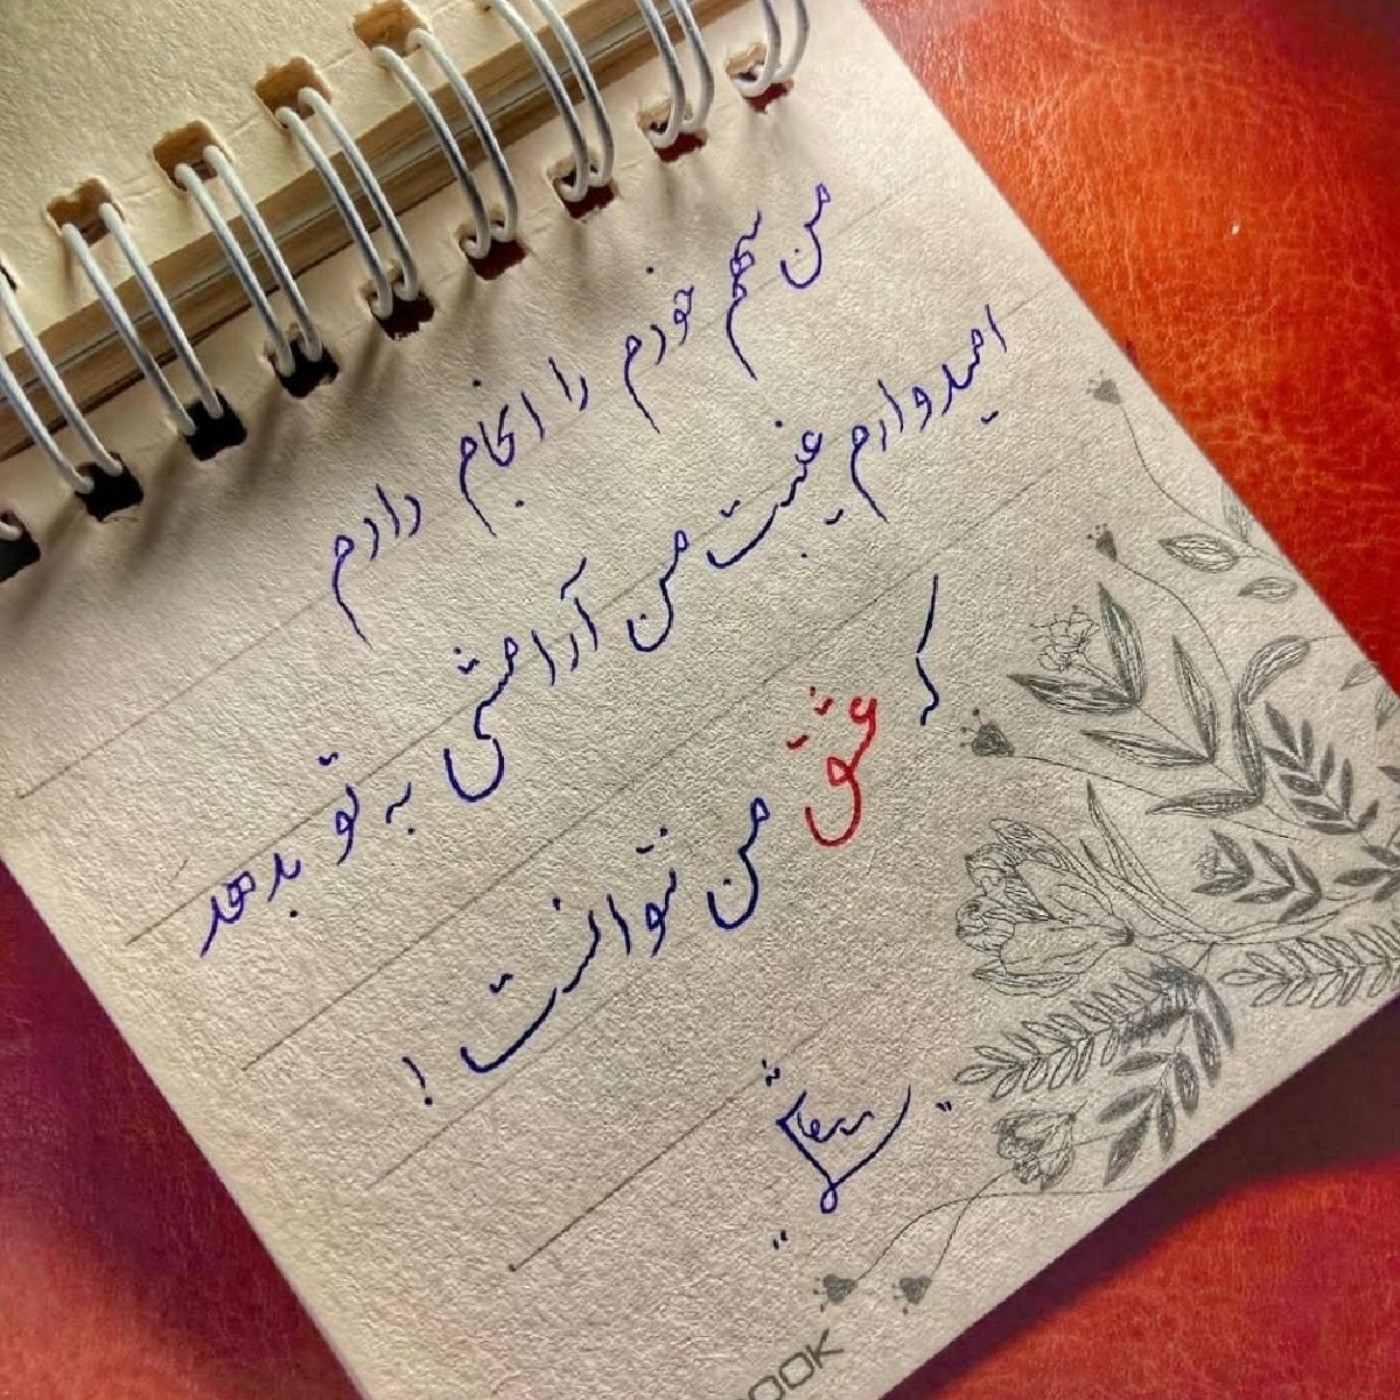 من سهم خودم را انجام دادم
امیدوارم غیبت من آرامشی به تو بدهد
که عشق من نتوانست !
OOK